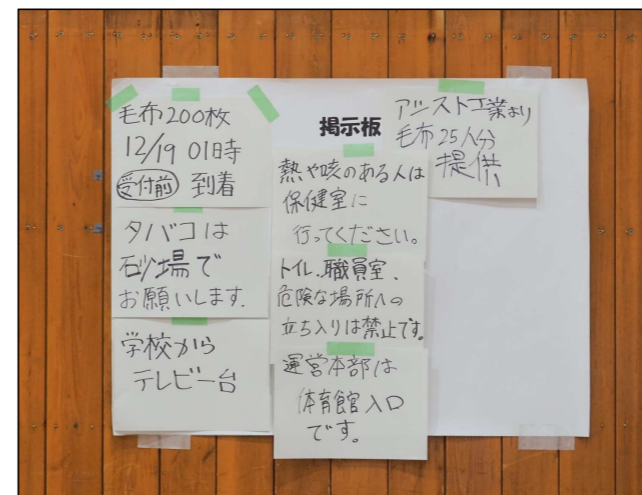 掲示板
毛布200枚
12/19 01時
受付前 到着
タバコは
砂場で
お願いします.
学校から
テレビ一台
熱や咳のある人は
保健室に
行ってください。
トイレ、職員室、
危険な場所への
立ち入りは禁止です。
運営本部は
体育館入口
です。
アシスト工業より
毛布25人分
提供